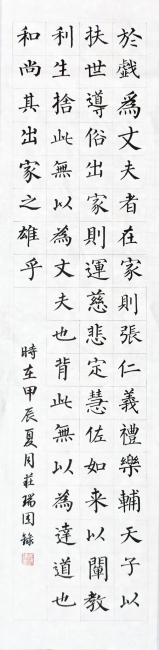 於戲為丈夫者在家則張仁義禮樂輔天子以
扶世導俗出家則運慈悲定慧佐如来以闡教
利生捨此無以為丈夫也背此無以為達道也
和尚其出家之雄乎
時在甲辰夏月莊瑞國錄